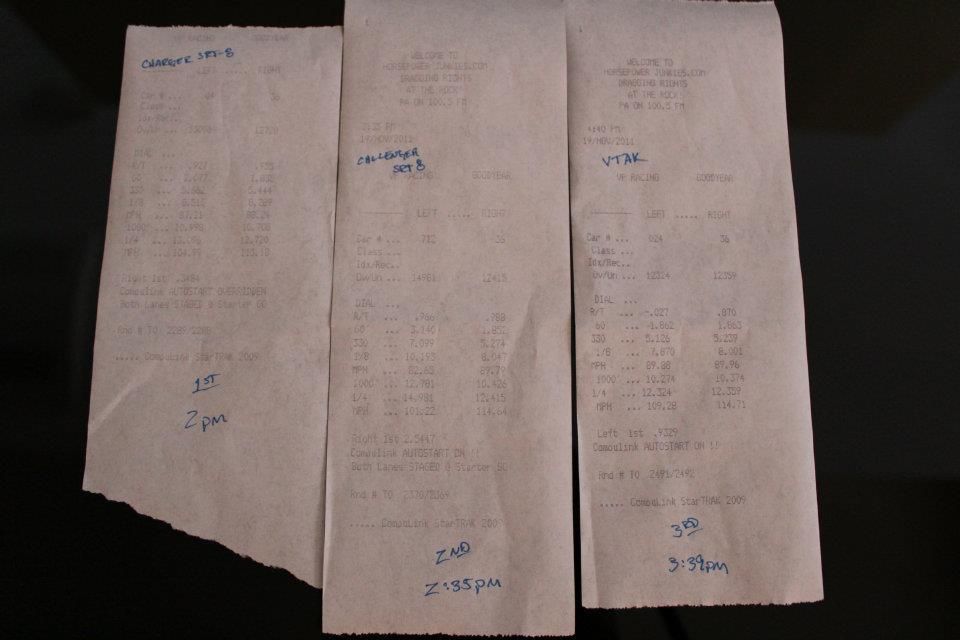 VP RACING GOODYEAR
CHARGER SRT-8
LEFT ..... RIGHT
Car # ... 024 36
Class ...
Idx/Rec..
Ov/Un ... 12720
DIAL ...
R/T ... .927 .935
60' ... 2.077
330 ... 5.662 5.444
1/8 ... 8.512 8.289
MPH ... 87.21 88.24
1000' ... 10.998 10.708
1/4 ... 12.720
MPH ... 104.99 113.18
Right 1st .3484
Compulink AUTOSTART OVERRIDDEN
Both Lanes STAGED @ Starter GO
Rnd # TO 2289/2288
..... CompuLink StarTRAK 2009
1ST
2PM
WELCOME TO
HORSEPOWER JUNKIES.COM
DRAGGING RIGHTS
AT THE ROCK!
PA ON 100.5 FM
19/NOV/2011
CALLENGER
SRT8
VP RACING GOODYEAR
LEFT ..... RIGHT
Car # ... 712 36
Class ...
Idx/Rec..
Ov/Un ... 14981 12415
DIAL ...
R/T ... .966 .988
60' ... 3.140 1.852
330 ... 7.099 5.274
1/8 ... 10.193 8.047
MPH ... 82.63 89.79
1000' ... 12.781 10.426
1/4 ... 14.981 12.415
MPH ... 101.22 114.64
Right 1st 2.5447
Compulink AUTOSTART ON !!
Both Lanes STAGED @ Starter GO
Rnd # TO 2370/2369
..... CompuLink StarTRAK 2009
2ND
2:35PM
WELCOME TO
HORSEPOWER JUNKIES.COM
DRAGGING RIGHTS
AT THE ROCK!
PA ON 100.5 FM
4:40 PM
19/NOV/2011
VTAK
VP RACING GOODYEAR
LEFT ..... RIGHT
Car # ... 024 36
Class ...
Idx/Rec..
Ov/Un ... 12324 12359
DIAL ...
R/T ... -.027 .870
60' ... 1.862 1.863
330 ... 5.126 5.239
1/8 ... 7.870 8.001
MPH ... 89.88 89.96
1000' ... 10.274 10.374
1/4 ... 12.324 12.359
MPH ... 109.28 114.71
Left 1st .9329
Compulink AUTOSTART ON !!
Rnd # TO 2491/2492
..... CompuLink StarTRAK 2009
3RD
3:39PM